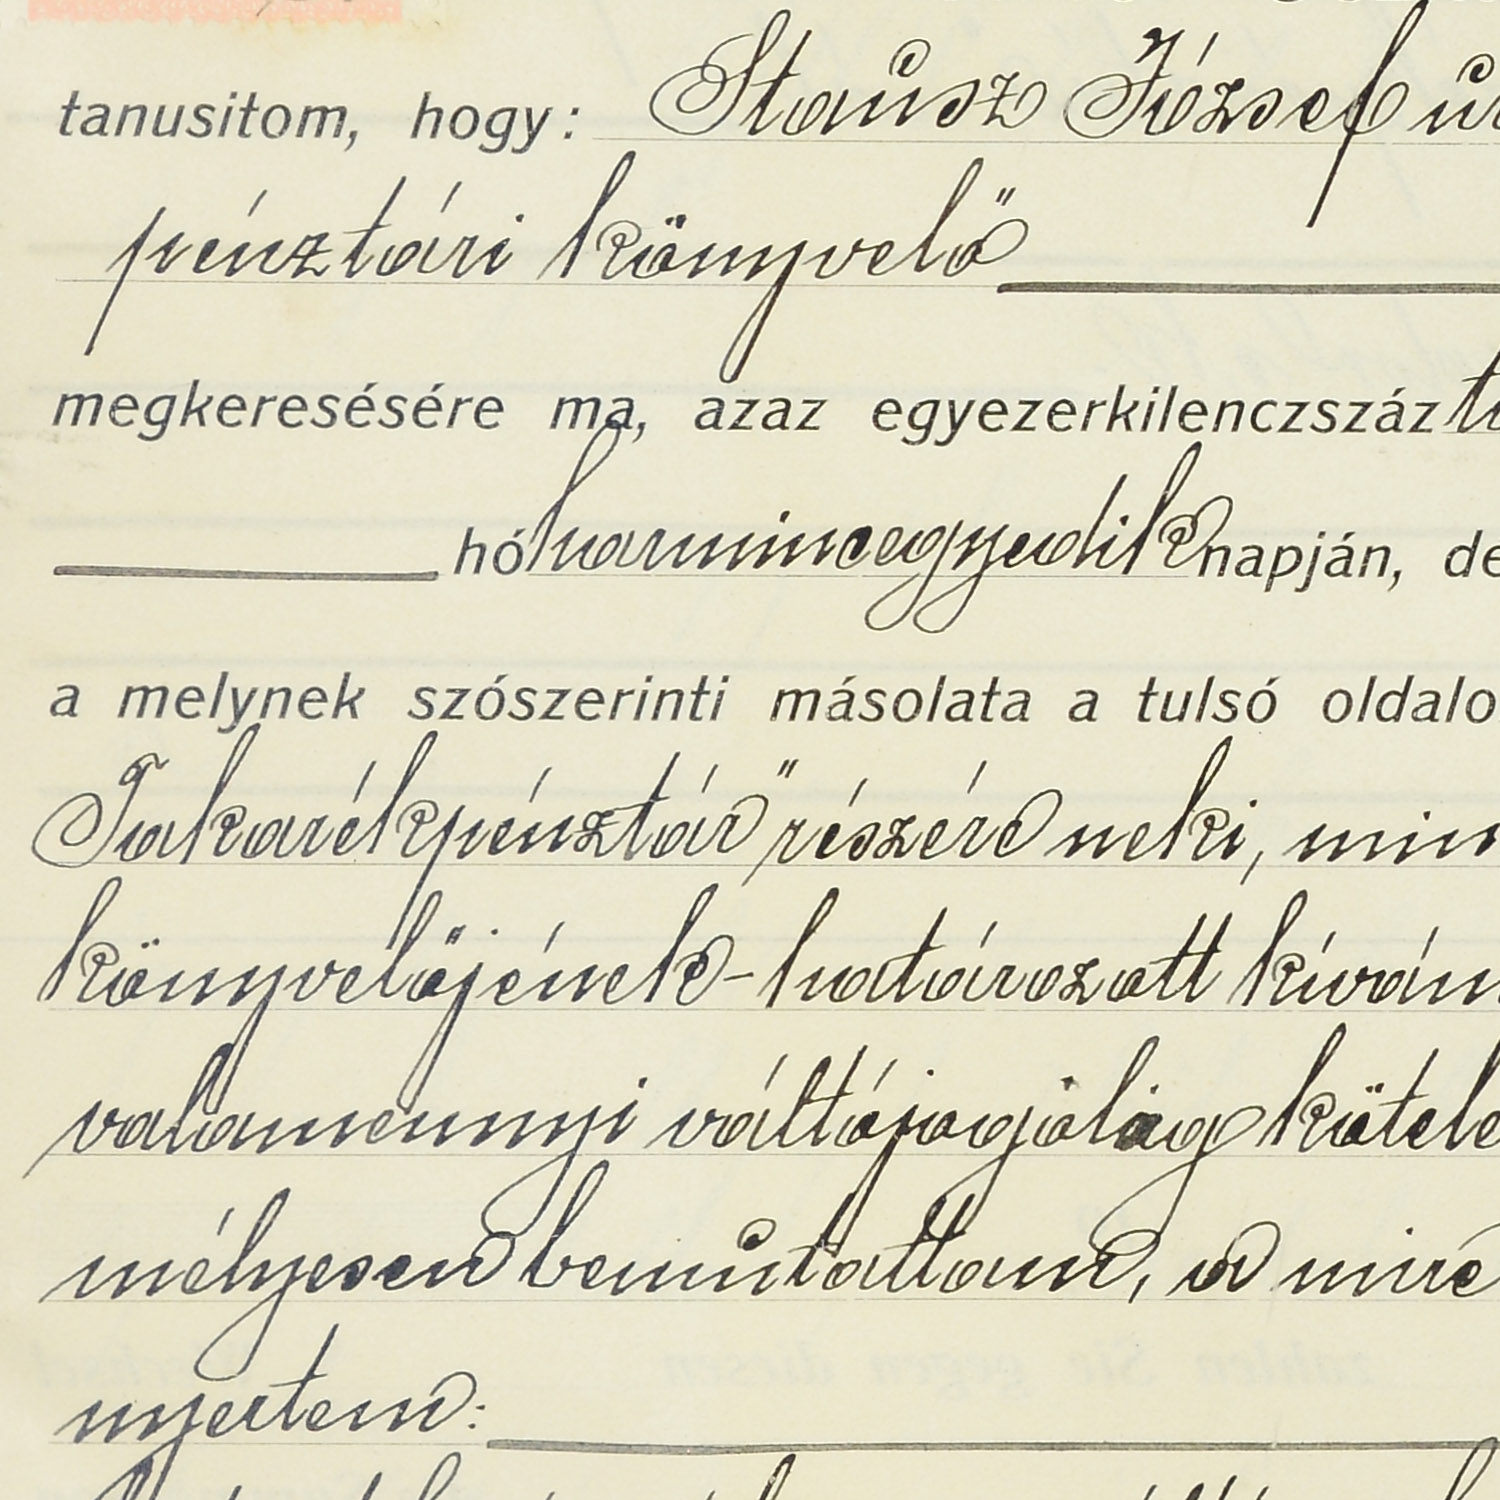 tanusitom, hogy: Stausz József úr
pénztári könyvelő
megkeresésére ma, azaz egyezerkilenczszáz
hó harmincegyedik napján, de
a melynek szószerinti másolata a tulsó oldalo
Takarékpénztár" részére neki, min
könyvelőjének - határozott kíván
valamennyi váltójogjolág kötele
mélyesen bemutattam, a mire
nyertem: